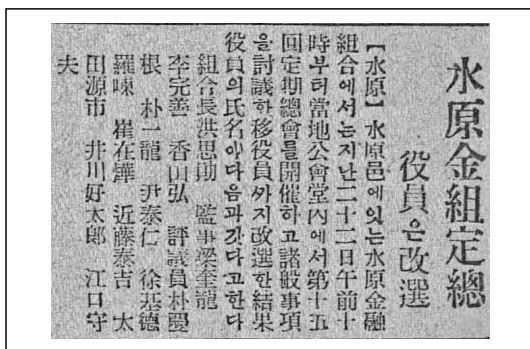 水原金組定總
役員은改選
【水原】水原邑에잇는水原金融
組合에서는지난二十二日午前十
時부터當地公會堂內에서第十五
回定期總會를開催하고諸般事項
을討議한後役員까지改選한結果
役員의氏名이다음과갓다고한다
組合長洪思勛 監事梁奎龍
李完善 香山弘 評議員朴
根 朴一龍 尹泰仁 徐基德
羅 崔在 近藤泰吉 太
田源市 井川好太郞 江口守
夫